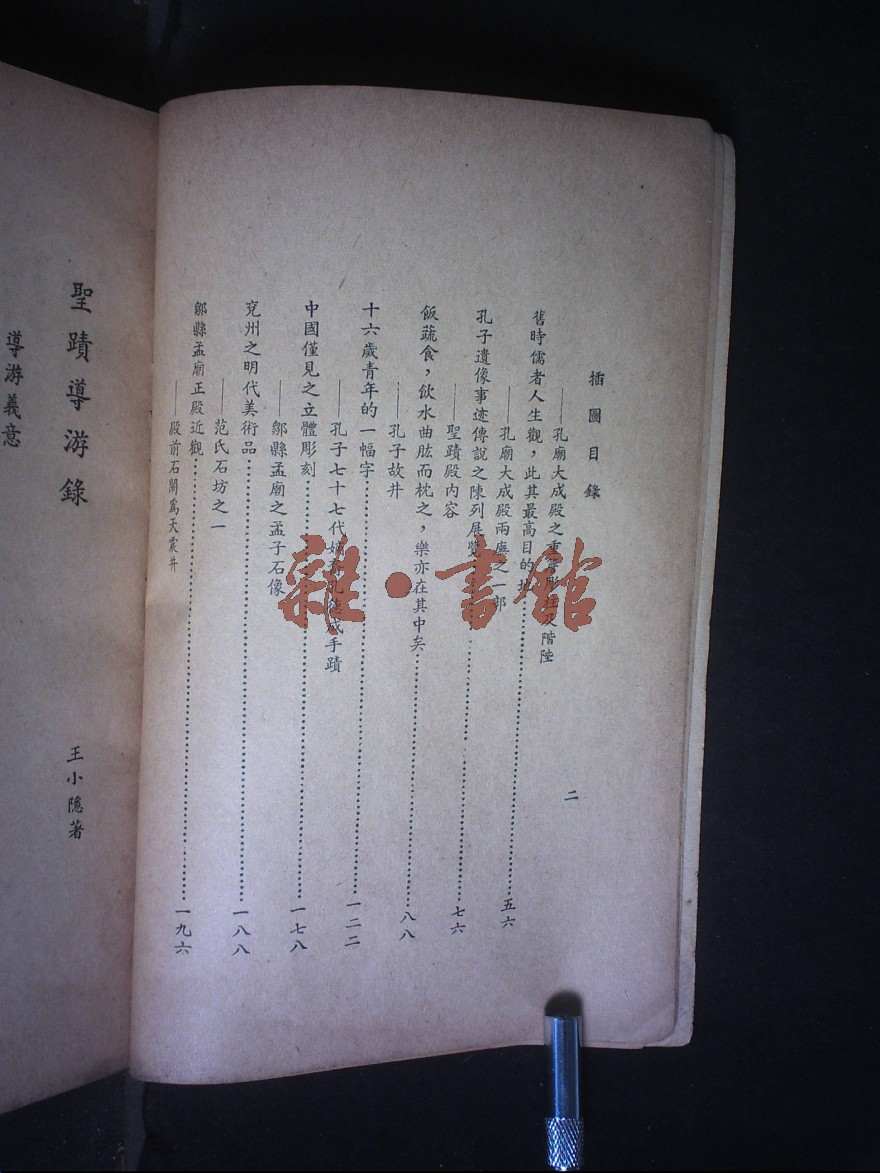 插圖目錄
二
——孔廟大成殿之重 及階陛
舊時儒者人生觀，此其最高目的地……五六
——孔廟大成殿兩廡之一部
孔子遺像事迹傳說之陳列展覽……七六
——聖蹟殿內容
飯蔬食，飲水曲肱而枕之，樂亦在其中矣……八八
——孔子故井
十六歲青年的一幅字……一二二
——孔子七十七代 孔德成手蹟
中國僅見之立體彫刻……一七八
——鄒縣孟廟之孟子石像
兗州之明代美術品……一八八
——范氏石坊之一
鄒縣孟廟正殿近觀……一九六
——殿前石開為天震井
聖蹟導游錄
王小隱著
導游義意
雜·書館